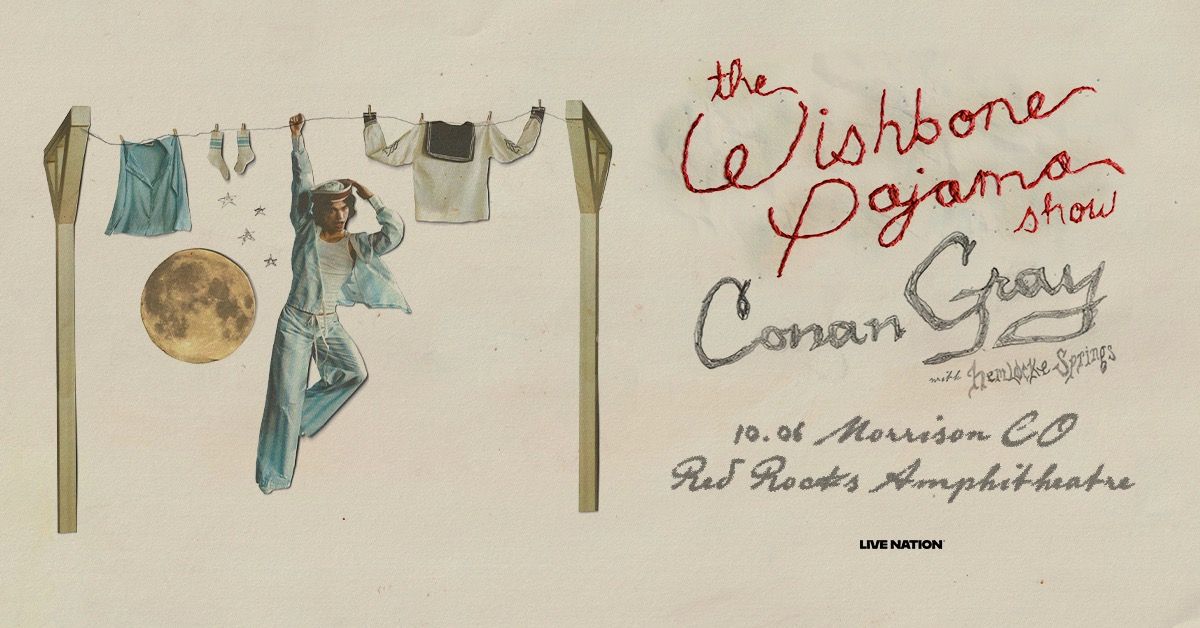 the
Wishbone
Pajama
show
Conan Gray
with Hemlocke Springs
10.06 Morrison CO
Red Rocks Amphitheatre
LIVE NATION